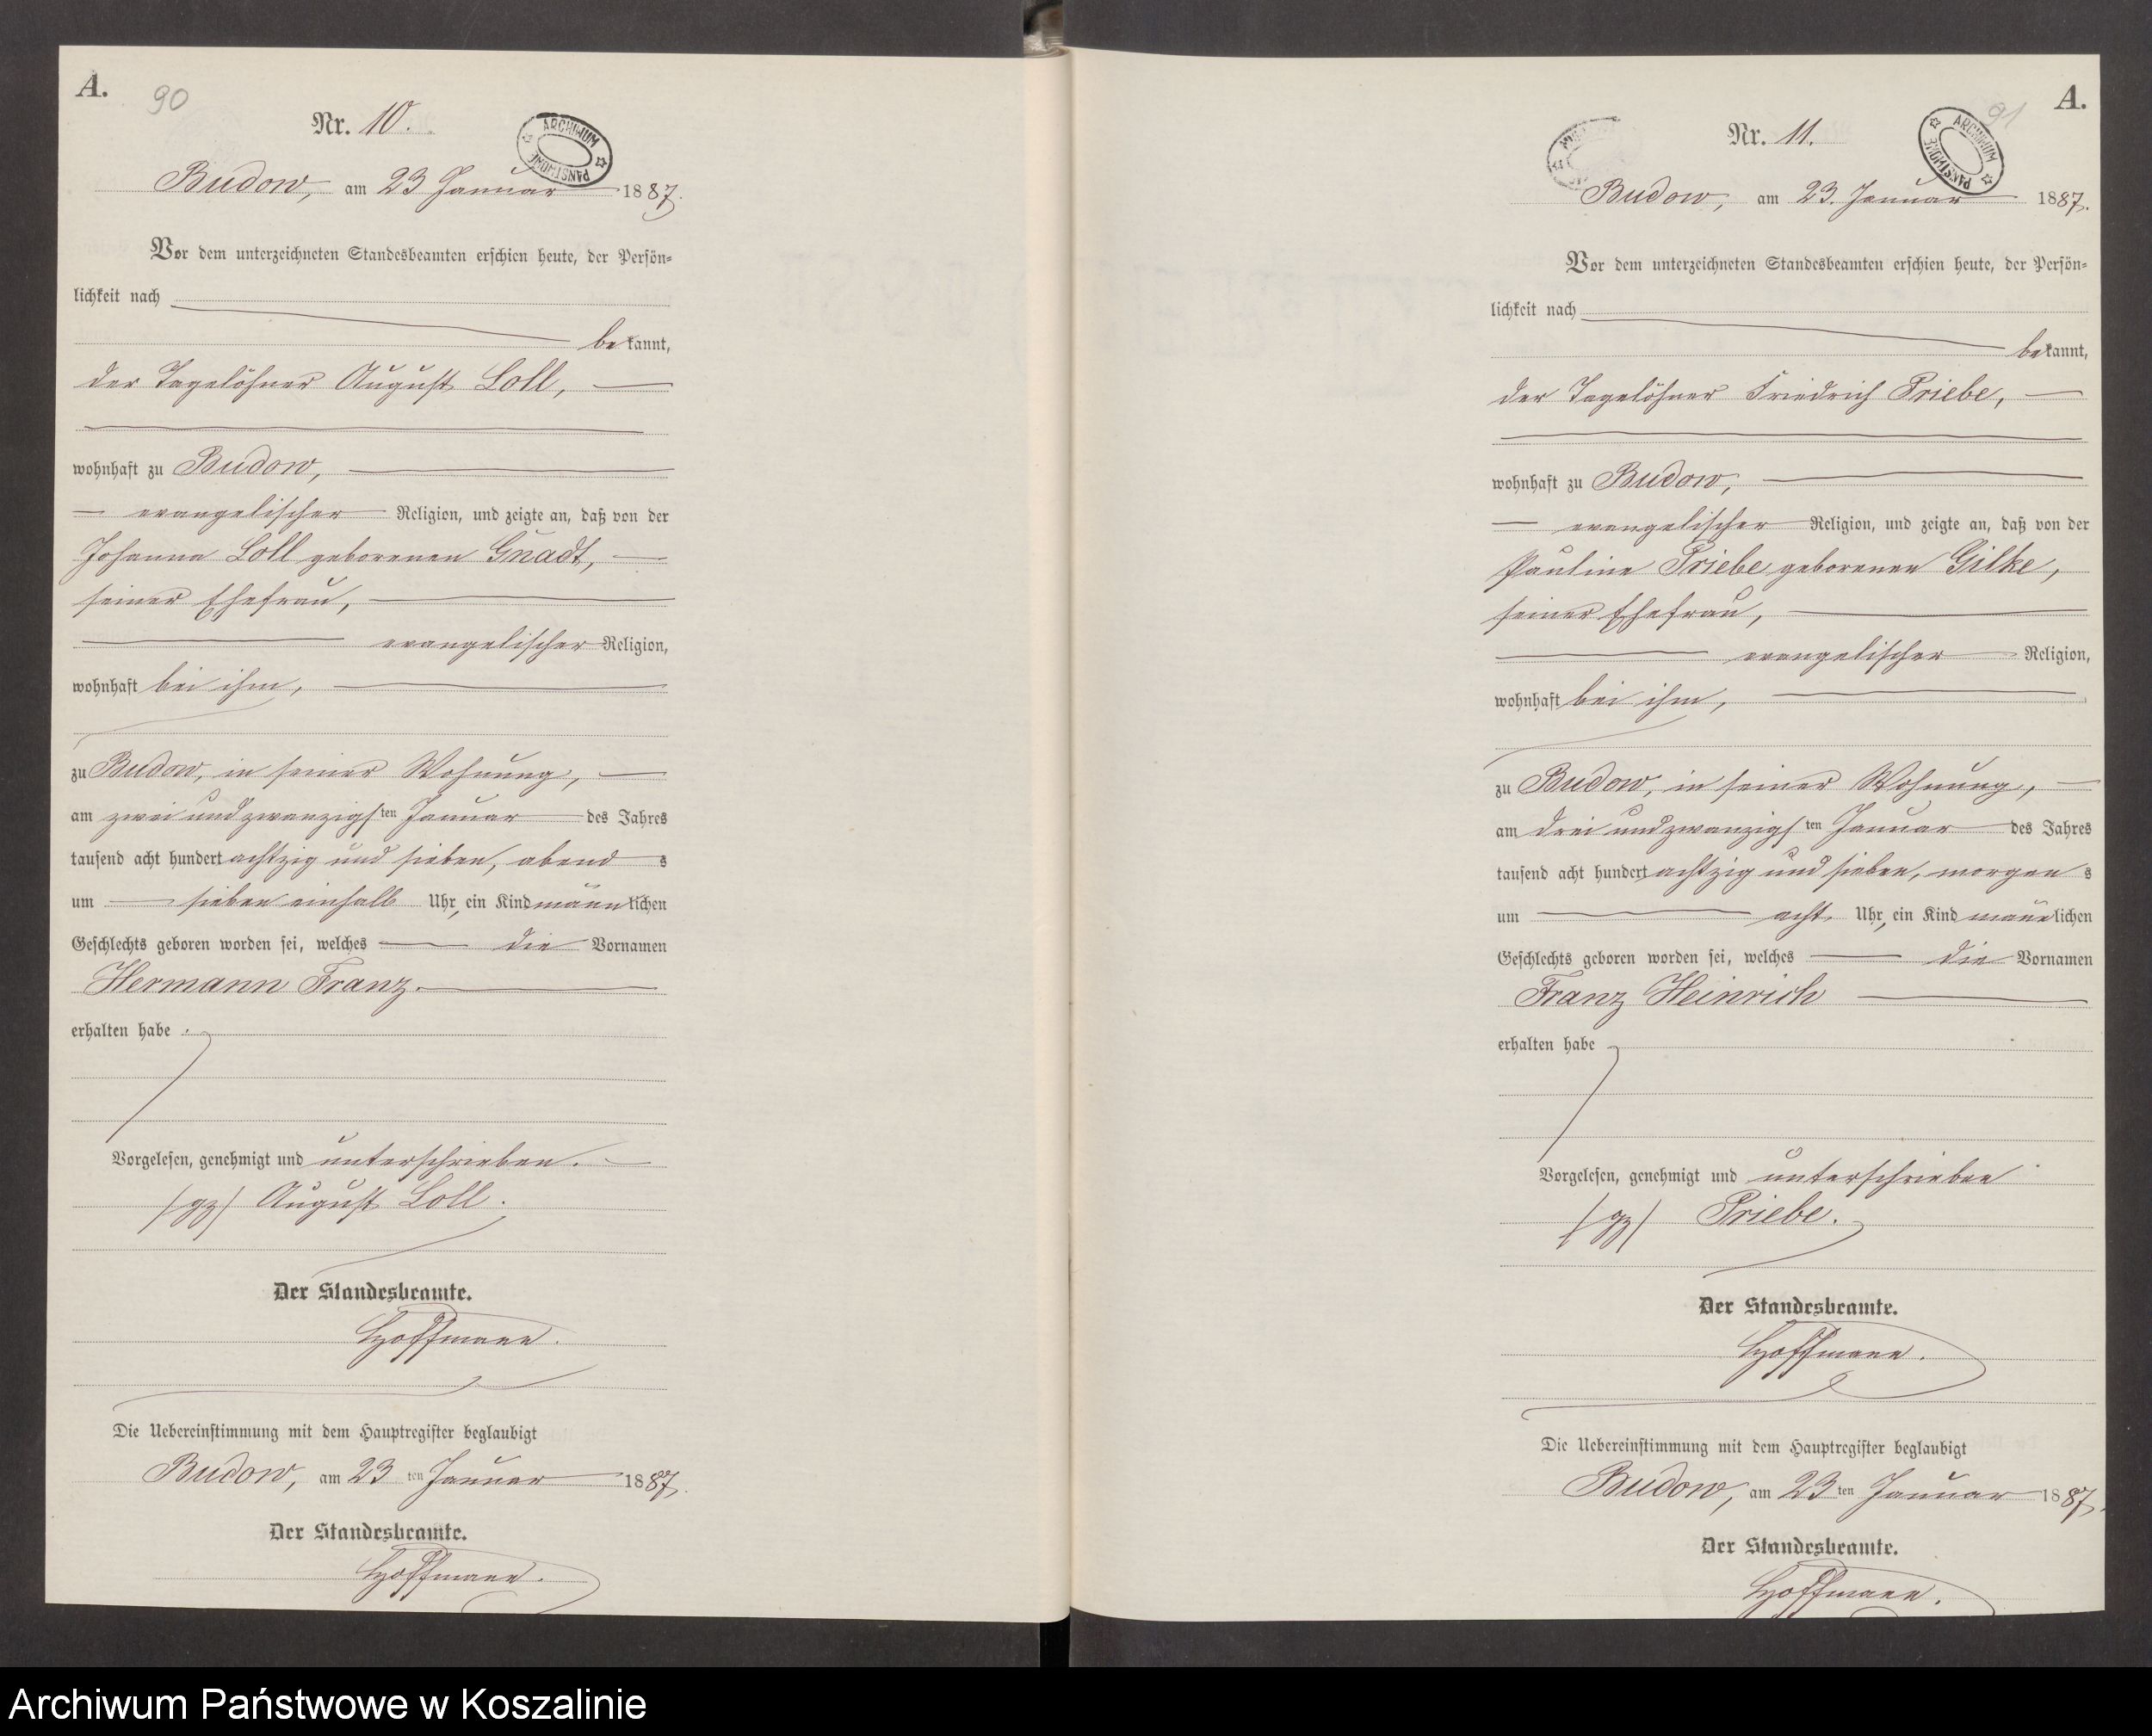 A.
90
Nr. 10.
ARCHIWUM PAŃSTWOWE
Budow, am 23 Januar 1887.
Vor dem unterzeichneten Standesbeamten erschien heute, der Persön-
lichkeit nach
bekannt,
der Tagelöhner August Loll,
wohnhaft zu Budow,
evangelischer Religion, und zeigte an, daß von der
Johanna Loll geborenen Gnadt,
seiner Ehefrau,
evangelischer Religion,
wohnhaft bei ihm,
zu Budow, in seiner Wohnung,
am zwei und zwanzigsten Januar des Jahres
tausend acht hundert achtzig und sieben, abends
um sieben einhalb Uhr, ein Kind männlichen
Geschlechts geboren worden sei, welches die Vornamen
Hermann Franz.
erhalten habe.
Vorgelesen, genehmigt und unterschrieben.
(gz) August Loll.
Der Standesbeamte.
Hoffmann.
Die Uebereinstimmung mit dem Hauptregister beglaubigt
Budow, am 23 ten Januar 1887.
Der Standesbeamte.
Hoffmann.
A.
91
Nr. 11.
ARCHIWUM PAŃSTWOWE
Budow, am 23. Januar 1887.
Vor dem unterzeichneten Standesbeamten erschien heute, der Persön-
lichkeit nach
bekannt,
der Tagelöhner Friedrich Priebe,
wohnhaft zu Budow,
evangelischer Religion, und zeigte an, daß von der
Pauline Priebe geborenen Gilke,
seiner Ehefrau,
evangelischer Religion,
wohnhaft bei ihm,
zu Budow, in seiner Wohnung,
am drei und zwanzigsten Januar des Jahres
tausend acht hundert achtzig und sieben, morgens
um acht Uhr, ein Kind männlichen
Geschlechts geboren worden sei, welches die Vornamen
Franz Heinrich
erhalten habe
Vorgelesen, genehmigt und unterschrieben
(gz) Priebe.
Der Standesbeamte.
Hoffmann.
Die Uebereinstimmung mit dem Hauptregister beglaubigt
Budow, am 23 ten Januar 1887.
Der Standesbeamte.
Hoffmann.
Archiwum Państwowe w Koszalinie